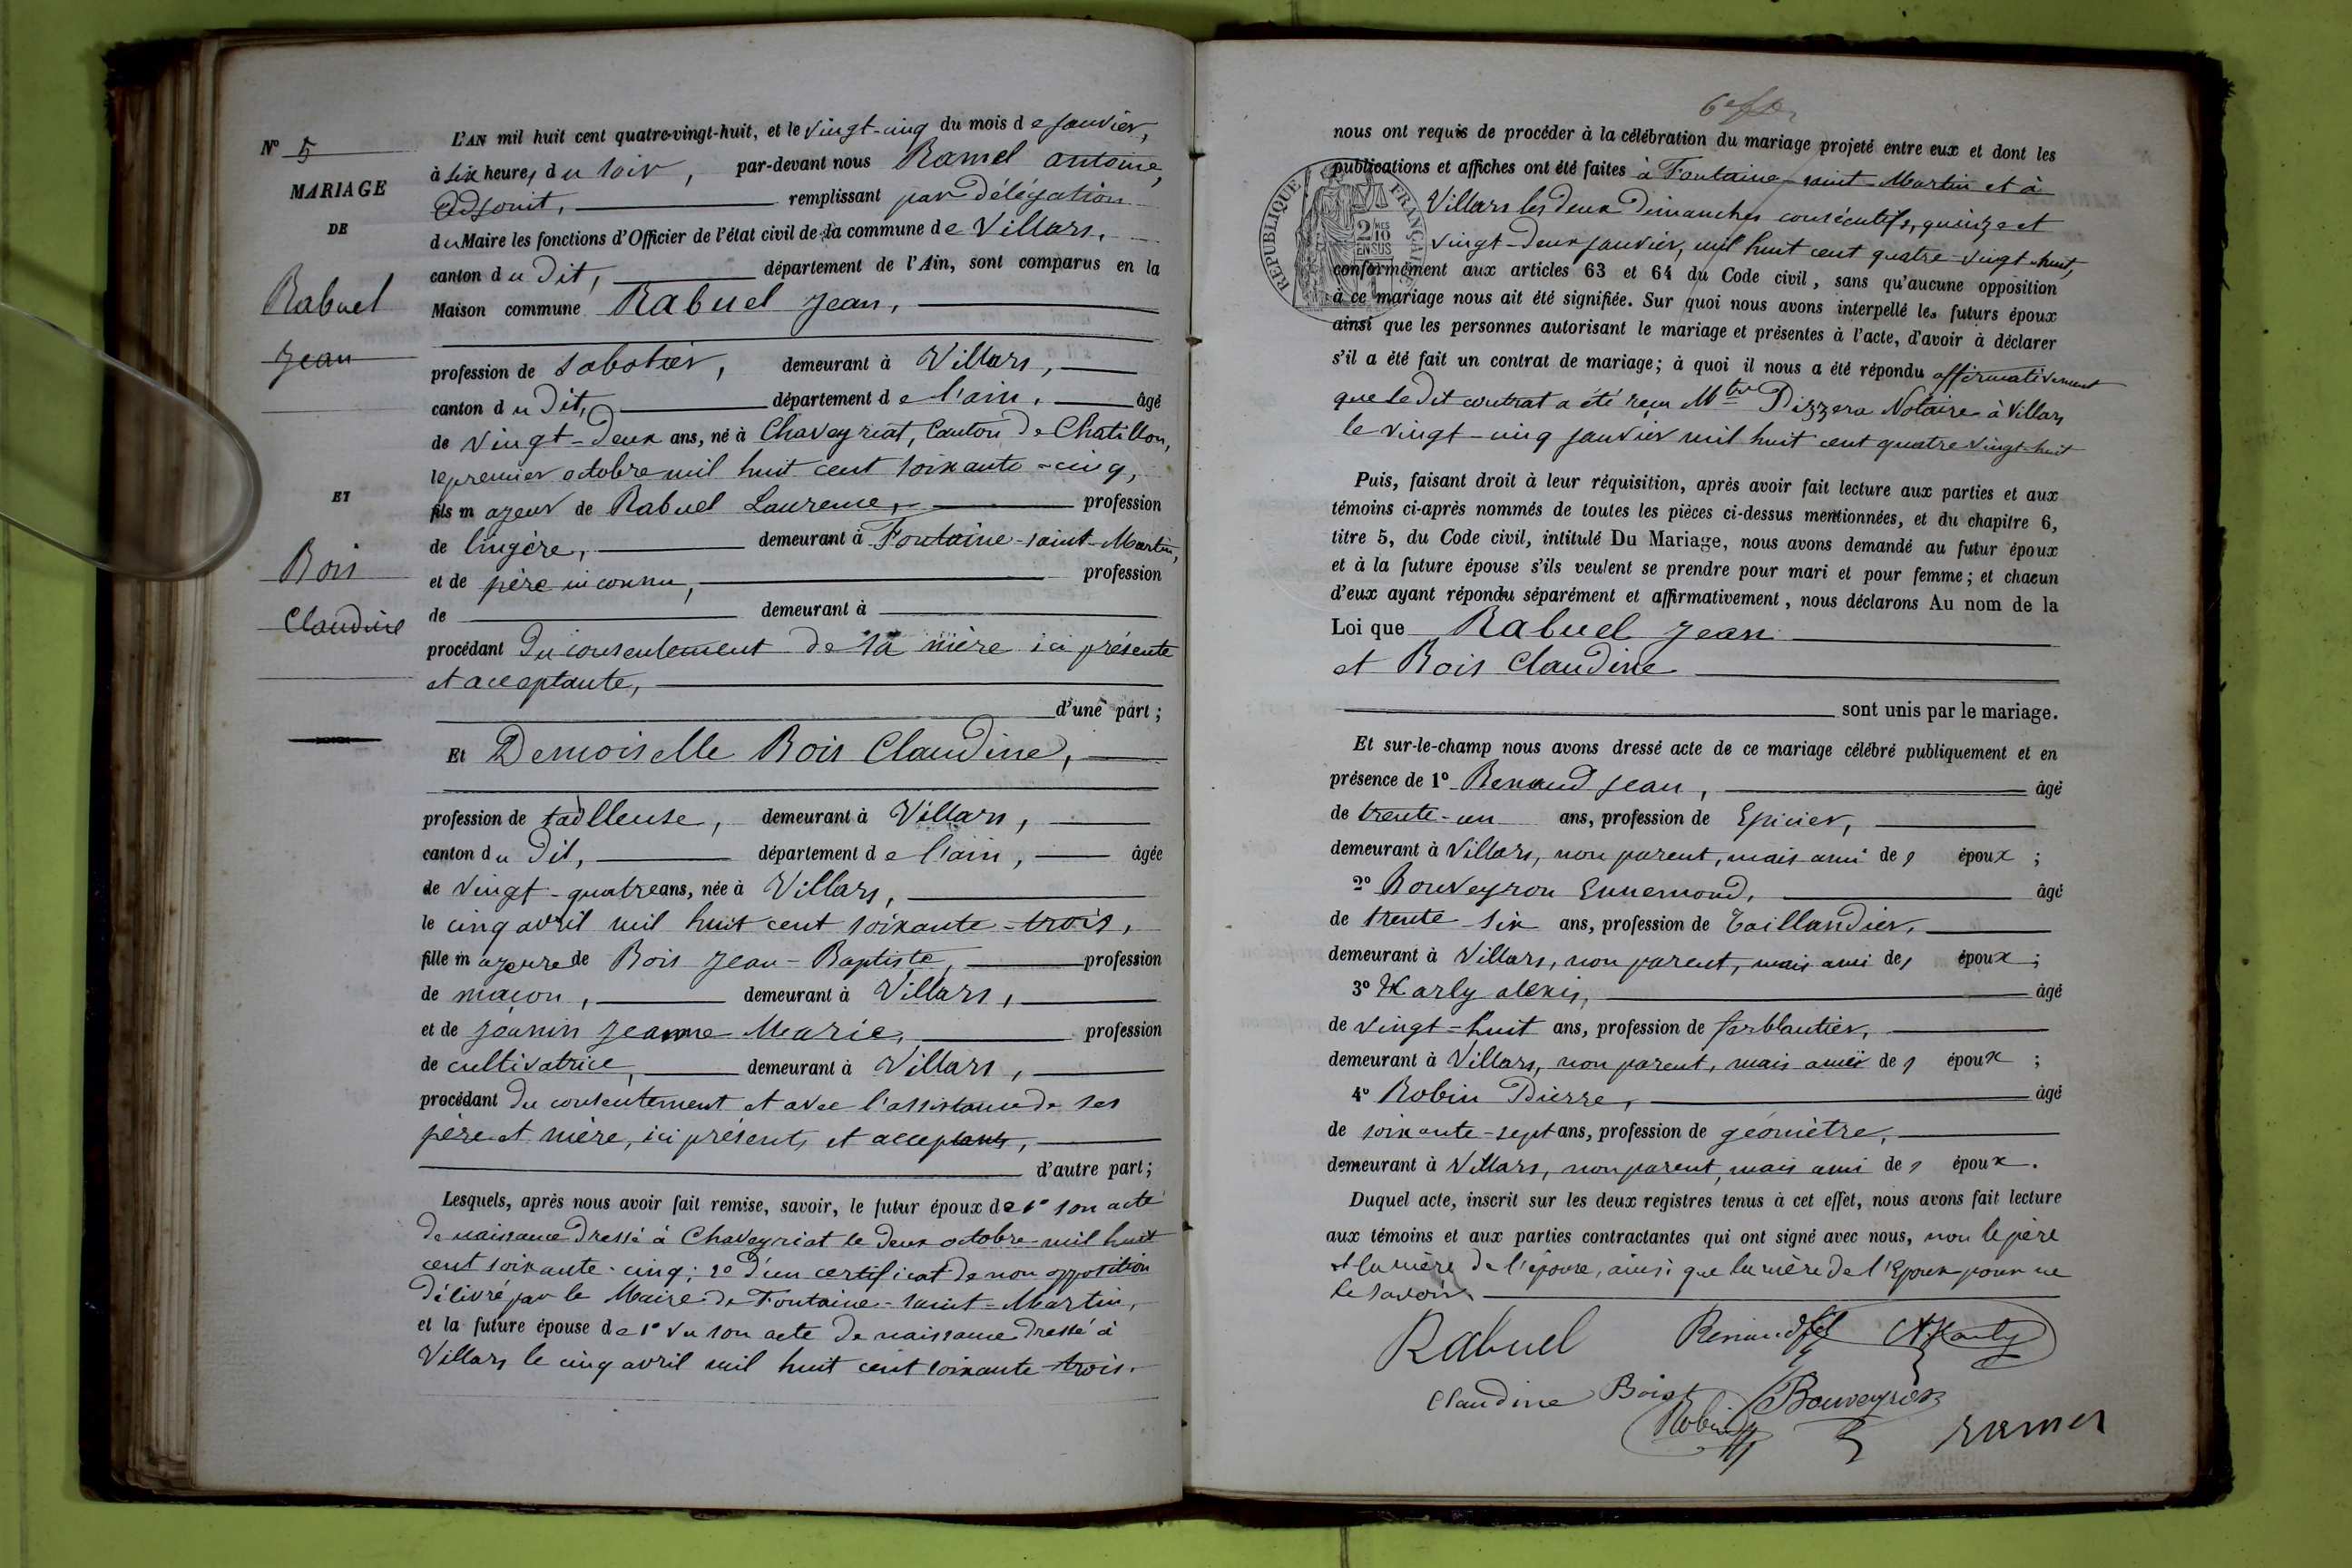 N° 5
MARIAGE
DE
Rabuel
Jean
ET
Bois
Claudine
L'AN mil huit cent quatre-vingt-huit, et le vingt-cinq du mois de janvier,
à six heures du soir, par-devant nous Ramel antoine,
Adjoint, remplissant par délégation
du Maire les fonctions d'Officier de l'état civil de la commune de Villars,
canton du dit, département de l'Ain, sont comparus en la
Maison commune Rabuel Jean,
profession de sabotier, demeurant à Villars,
canton du dit, département de l'ain, âgé
de vingt-deux ans, né à Chaveyriat, Canton de Chatillon,
le premier octobre mil huit cent soixante-cinq,
fils majeur de Rabuel Laurence, profession
de lingère, demeurant à Fontaine-saint-Martin,
et de père inconnu, profession
de demeurant à
procédant du consentement de sa mère ici présente
et acceptante,
d'une part;
Et Demoiselle Bois Claudine,
profession de tailleuse, demeurant à Villars,
canton du dit, département de l'ain, âgée
de vingt-quatre ans, née à Villars,
le cinq avril mil huit cent soixante-trois,
fille majeure de Bois Jean-Baptiste, profession
de maçon, demeurant à Villars,
et de Joanin Jeanne Marie, profession
de cultivatrice, demeurant à Villars,
procédant du consentement et avec l'assistance de ses
père et mère, ici présents et acceptants,
d'autre part;
Lesquels, après nous avoir fait remise, savoir, le futur époux de 1° son acte
de naissance dressé à Chaveyriat le deux octobre mil huit
cent soixante-cinq; 2° d'un certificat de non opposition
délivré par le Maire de Fontaine-saint-Martin,
et la future épouse de 1° vu son acte de naissance dressé à
Villars le cinq avril mil huit cent soixante-trois.
RÉPUBLIQUE FRANÇAISE
2/10
EN SUS
nous ont requis de procéder à la célébration du mariage projeté entre eux et dont les
publications et affiches ont été faites à Fontaine-saint-Martin et à
Villars les deux dimanches consécutifs, quinze et
vingt-deux janvier, mil huit cent quatre-vingt-huit,
conformément aux articles 63 et 64 du Code civil, sans qu'aucune opposition
à ce mariage nous ait été signifiée. Sur quoi nous avons interpellé les futurs époux
ainsi que les personnes autorisant le mariage et présentes à l'acte, d'avoir à déclarer
s'il a été fait un contrat de mariage; à quoi il nous a été répondu affirmativement
que le dit contrat a été reçu Mtre Pizzera Notaire à Villars
le vingt-cinq janvier mil huit cent quatre vingt-huit
Puis, faisant droit à leur réquisition, après avoir fait lecture aux parties et aux
témoins ci-après nommés de toutes les pièces ci-dessus mentionnées, et du chapitre 6,
titre 5, du Code civil, intitulé Du Mariage, nous avons demandé au futur époux
et à la future épouse s'ils veulent se prendre pour mari et pour femme; et chacun
d'eux ayant répondu séparément et affirmativement, nous déclarons Au nom de la
Loi que Rabuel Jean
et Bois Claudine
sont unis par le mariage.
Et sur-le-champ nous avons dressé acte de ce mariage célébré publiquement et en
présence de 1° Renaud Jean, âgé
de trente-un ans, profession de Epicier,
demeurant à Villars, non parent, mais ami des époux;
2° Bouveyron Ennemond, âgé
de trente-six ans, profession de Taillandier,
demeurant à Villars, non parent, mais ami des époux;
3° Karly alexis, âgé
de vingt-huit ans, profession de ferblantier,
demeurant à Villars, non parent, mais ami des époux;
4° Robin Pierre, âgé
de soixante-sept ans, profession de géomètre,
demeurant à Villars, non parent, mais ami des époux.
Duquel acte, inscrit sur les deux registres tenus à cet effet, nous avons fait lecture
aux témoins et aux parties contractantes qui ont signé avec nous, non le père
et la mère de l'épouse, ainsi que la mère de l'Epoux pour ne
le savoir.
Rabuel Renaud A. Karly
Claudine Bois Bouveyron
Robin ramel